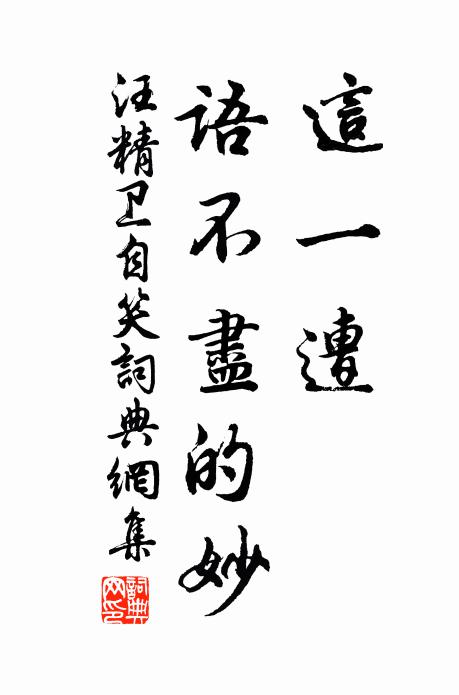 這一遭
語不盡的妙
汪精卫自笑詞典網集
詞典网印